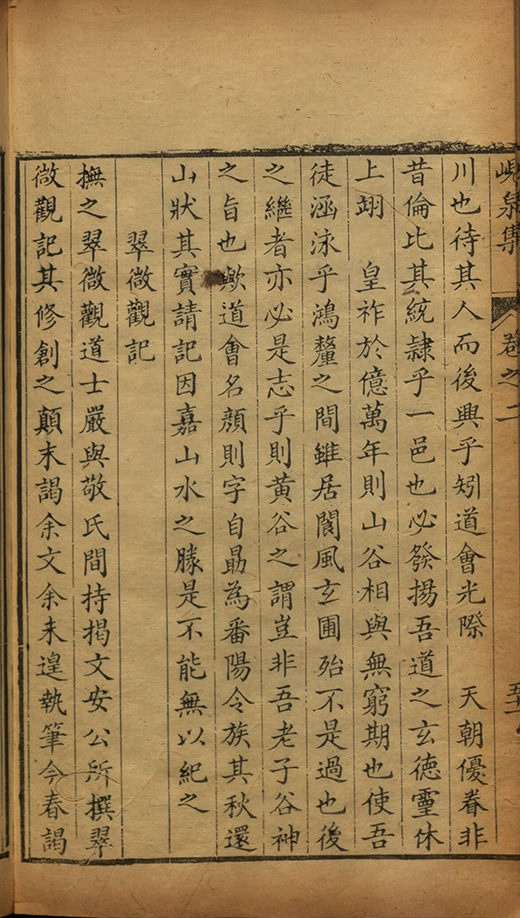 峴泉集 卷之二
川也待其人而後興乎矧道會光際 天朝優眷非
昔倫比其統隷乎一邑也必發揚吾道之玄德靈休
上翊 皇祚於億萬年則山谷相與無窮期也使吾
徒涵泳乎鴻釐之間雖居閬風玄圃殆不是過也後
之繼者亦必是志乎則黄谷之謂豈非吾老子谷神
之旨也歟道會名顔則字自勗為番陽令族其秋還
山狀其實請記因嘉山水之勝是不能無以紀之
翠微觀記
撫之翠微觀道士嚴與敬氏間持揭文安公所撰翠
微觀記其修創之顛末謁余文余未遑執筆今春謁